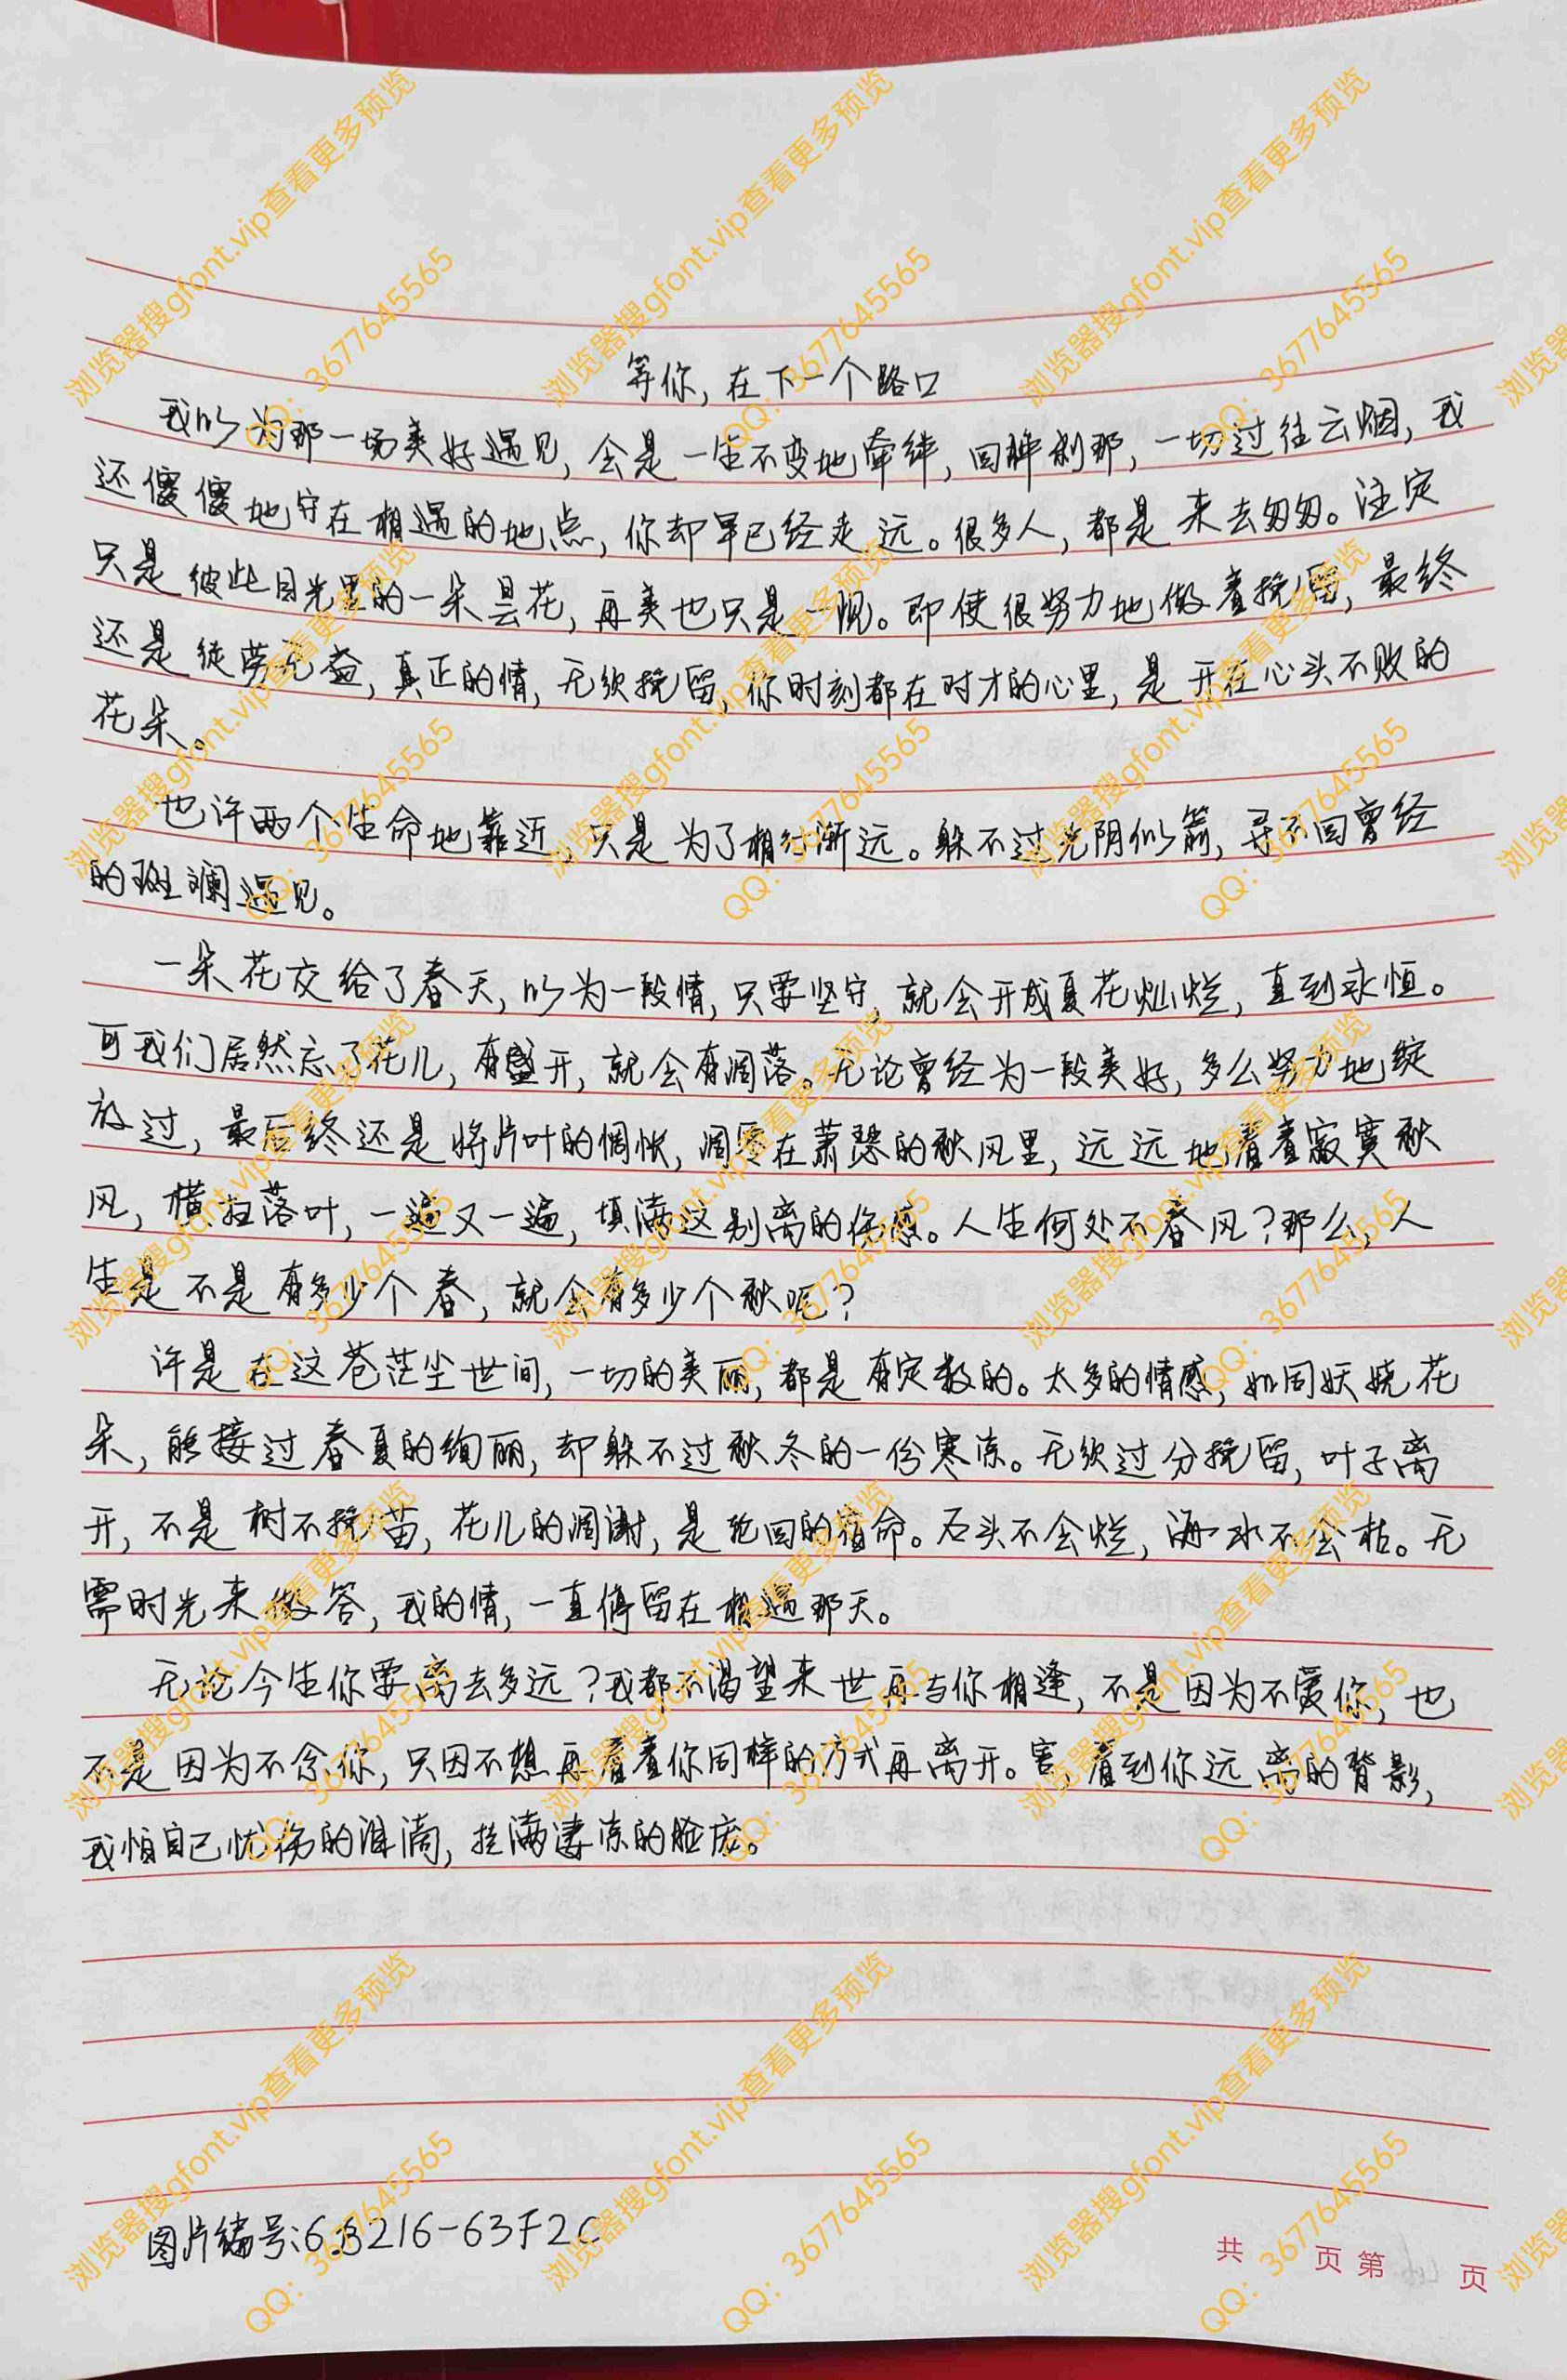 等你,在下一个路口
我以为那一场美好遇见,会是一生不变地牵绊,回眸刹那,一切过往云烟,我
还傻傻地守在相遇的地点,你却早已经走远。很多人,都是来去匆匆。注定
只是彼此目光里的一朵昙花,再美也只是一现。即使很努力地做着挽留,最终
还是徒劳无益,真正的情,无须挽留,你时刻都在对方的心里,是开在心头不败的
花朵。
也许两个生命地靠近,只是为了相行渐远。躲不过光阴似箭,寻不回曾经
的斑斓遇见。
一朵花交给了春天,以为一段情,只要坚守,就会开成夏花灿烂,直到永恒。
可我们居然忘了花儿,有盛开,就会有凋落。无论曾经为一段美好,多么努力地绽
放过,最后终还是将片叶的惆怅,凋零在萧瑟的秋风里,远远地看着寂寞秋
风,横扫落叶,一遍又一遍,填满这别离的伤感。人生何处不春风?那么,人
生是不是有多少个春,就会有多少个秋呢?
许是在这苍茫尘世间,一切的美丽,都是有定数的。太多的情感,如同妖娆花
朵,能接过春夏的绚丽,却躲不过秋冬的一份寒凉。无须过分挽留,叶子离
开,不是树不挽留,花儿的凋谢,是轮回的宿命。石头不会烂,海水不会枯。无
需时光来做答,我的情,一直停留在相遇那天。
无论今生你要离去多远?我都不渴望来世再与你相逢,不是因为不爱你,也
不是因为不念你,只因不想再看着你同样的方式再离开。害,看到你远离的背影,
我怕自己忧伤的泪滴,挂满凄凉的脸庞。
图片编号:6B216-63F2C
共 页 第 页
浏览器搜gfont.vip查看更多预览
QQ:3677645565